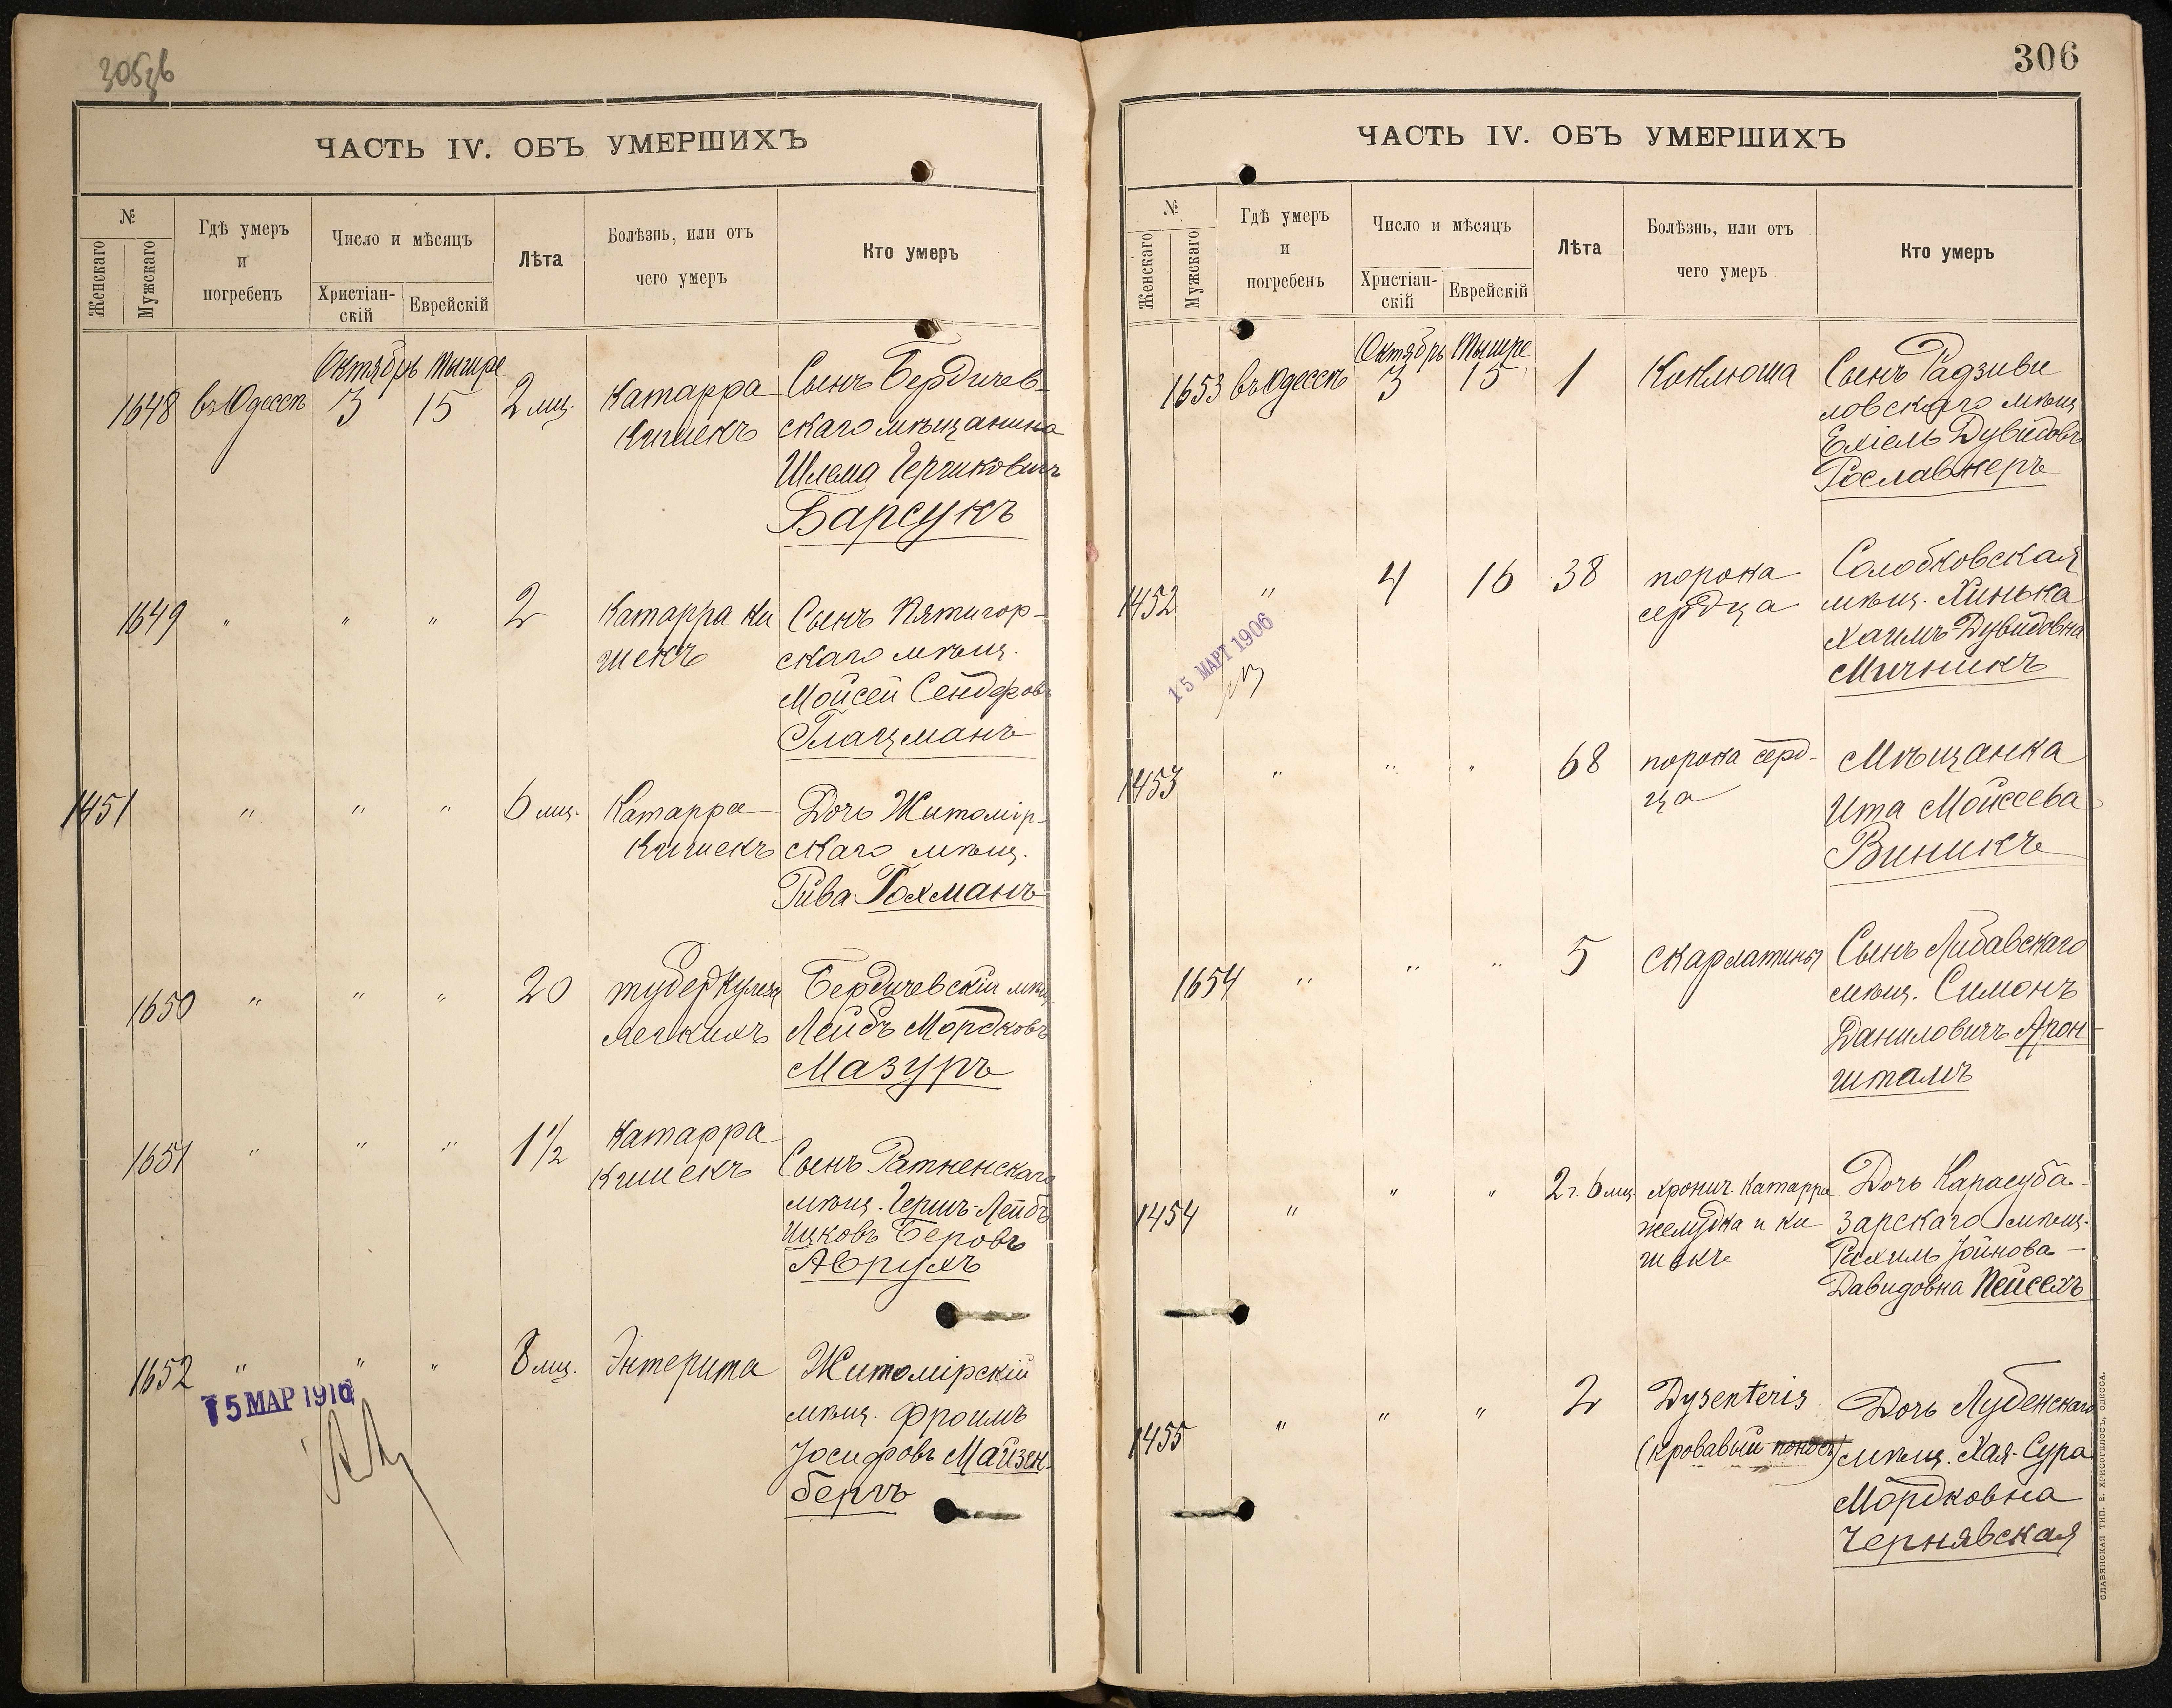 305зв
ЧАСТЬ IV. ОБЪ УМЕРШИХЪ
№
Женскаго
Мужскаго
Гдѣ умеръ
и
погребенъ
Число и мѣсяцъ
Христіан-
скій
Еврейскій
Лѣта
Болѣзнь, или отъ
чего умеръ
Кто умеръ
Октябрь Тишре
1648 въ Одессѣ 3 15 2 мц. Катарра Сынъ Бердичев-
кишекъ скаго мѣщанина
Шлема Гершковичъ
Барсукъ
1649 " " " 2 Катарра ки Сынъ Пятигор-
шекъ скаго мѣщ.
Мойсей Сендеровъ
Глацманъ
1451 " " " 6 мц. Катарра Дочь Житомір-
кишекъ скаго мѣщ.
Рива Гохманъ
1650 " " " 20 туберкулеза Бердичевскій мѣщ.
легкихъ Лейбъ Мордковъ
Мазуръ
1651 " " " 1 1/2 Катарра
кишекъ Сынъ Ратненскаго
мѣщ. Гершъ-Лейбъ
Ицковъ Беровъ
Аврухъ
1652 " " " 8 мц. Энтерита Житомірскій
мѣщ. Фроимъ
Іосифовъ Майзен-
бергъ
15 МАР 1910
306
ЧАСТЬ IV. ОБЪ УМЕРШИХЪ
№
Женскаго
Мужскаго
Гдѣ умеръ
и
погребенъ
Число и мѣсяцъ
Христіан-
скій
Еврейскій
Лѣта
Болѣзнь, или отъ
чего умеръ
Кто умеръ
Октябрь Тишре
1653 въ Одессѣ 3 15 1 Коклюша Сынъ Радзиви
ловскаго мѣщ
Ехіель Дувидовъ
Рославкеръ
1452 " 4 16 38 порока Солобковская
сердца мѣщ. Хинька
Хаимъ-Дувидовна
Мичникъ
15 МАРТ 1906
1453 " " " 68 порока серд- Мѣщанка
ца Ита Мойсеева
Виникъ
1654 " " " 5 скарлатины Сынъ Либавскаго
мѣщ. Симонъ
Даниловичъ Арон-
штамъ
1454 " " " 2 г. 6 мц. хронич. катарра Дочь Карасуба-
желудка и ки зарскаго мѣщ.
шекъ Рахиль Іойнова-
Давидовна Пейсехъ
1455 " " " 2 Dysenteris Дочь Лубенскаго
(кровавый поносъ) мѣщ. Хая-Сура
Мордковна
Чернявская
СЛАВЯНСКАЯ ТИП. Е. ХРИСОГЕЛОСЪ, ОДЕССА.